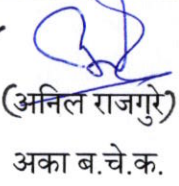 (अनिल राजगुरे)
अका ब.चे.क.